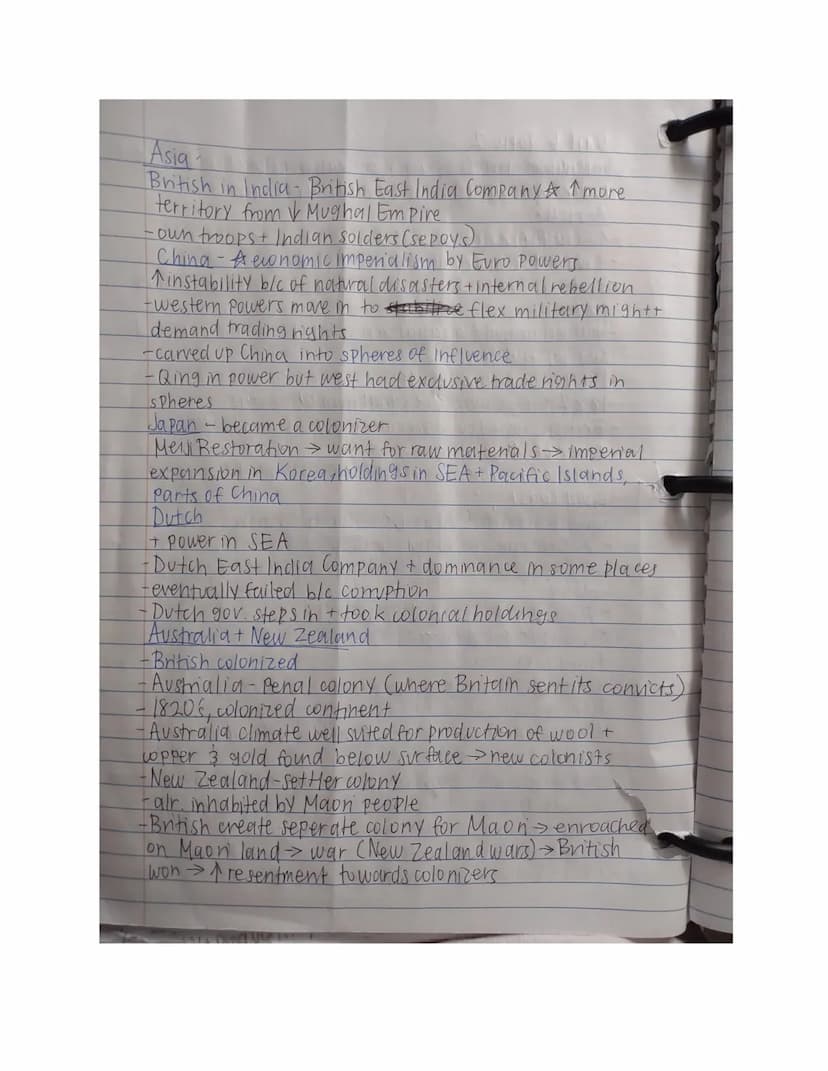 Asia
British in India - British East India Company ☆ ↑ more
territory from ↓ Mughal Empire
-own troops + Indian solders (sepoys)
China - ☆ economic imperialism by Euro Powers
↑ instability b/c of natural disasters + internal rebellion
-western powers move in to flex military might +
demand trading rights
-carved up China into spheres of influence
-Qing in power but west had exclusive trade rights in
spheres
Japan - became a colonizer
Meiji Restoration → want for raw materials → imperial
expansion in Korea, holdings in SEA + Pacific Islands,
parts of China
Dutch
+ power in SEA
-Dutch East India Company + dominance in some places
-eventually failed b/c corruption
-Dutch gov. steps in + took colonial holdings
Australia + New Zealand
-British colonized
-Australia - Penal colony (where Britain sent its convicts)
- 1820s, colonized continent
-Australia climate well suited for production of wool +
copper & gold found below surface → new colonists
-New Zealand - settler colony
-alr. inhabited by Maori people
-British create seperate colony for Maori → enroached
on Maori land → war (New Zealand wars) → British
won → ↑ resentment towards colonizers